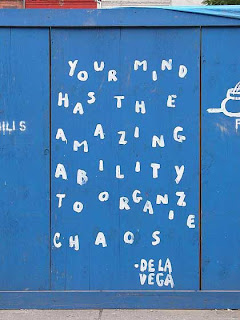 YOUR MIND
HAS THE
AMAZING
ABILITY
TO ORGANIZE
CHAOS
·DE LA
VEGA